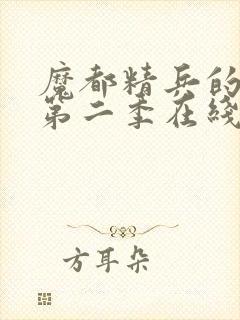 魔都精兵的
第二季在线
方耳朵